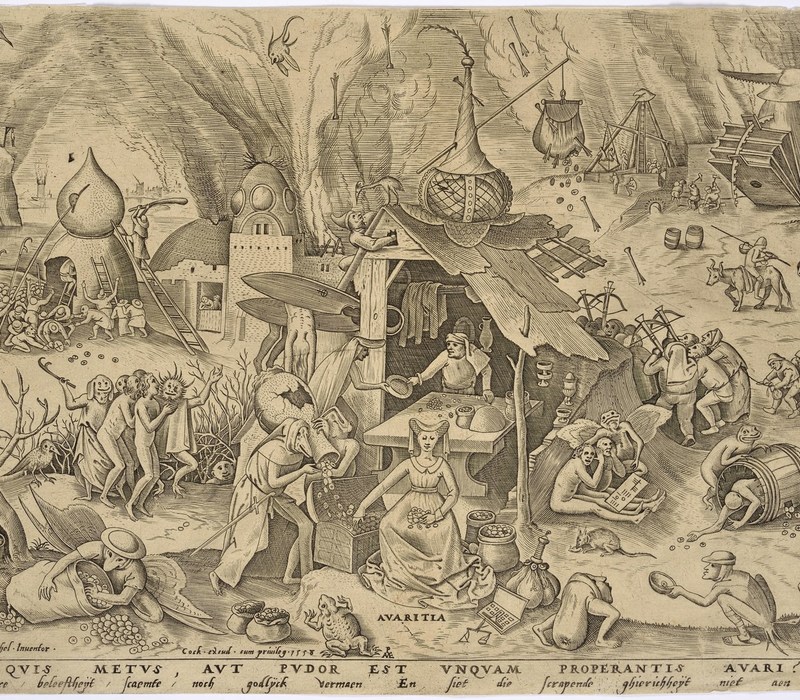 AVARITIA
hel · Inuentor ·
Cock · excud · cum priuileg · 1558
QVIS METVS, AVT PVDOR EST VNQVAM PROPERANTIS AVARI?
re beleeftheÿt / scaemte / noch godlÿck vermaen En siet die scrapende ghiericheÿt niet aen